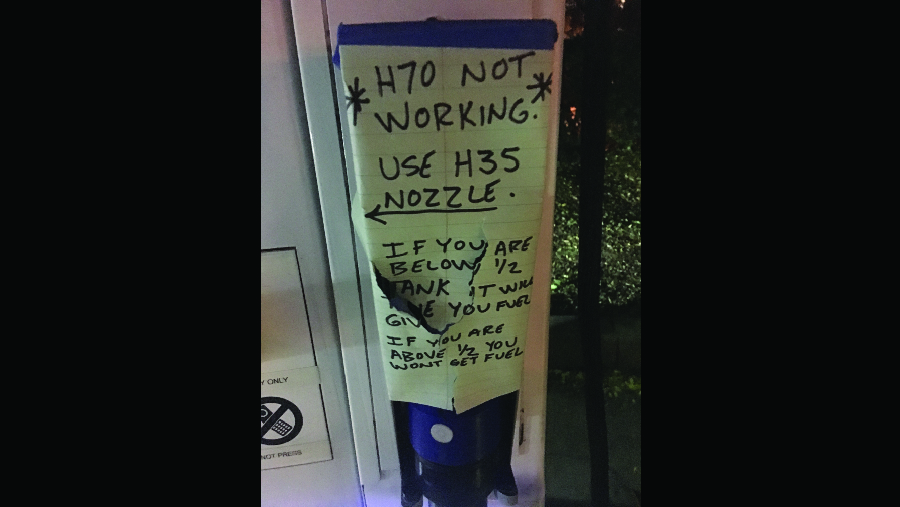 * H70 NOT *
WORKING.
USE H35
NOZZLE.
IF YOU ARE
BELOW 1/2
TANK IT WILL
YOU FUEL
GIV
IF YOU ARE
ABOVE 1/2 YOU
WONT GET FUEL
Y ONLY
NOT PRESS